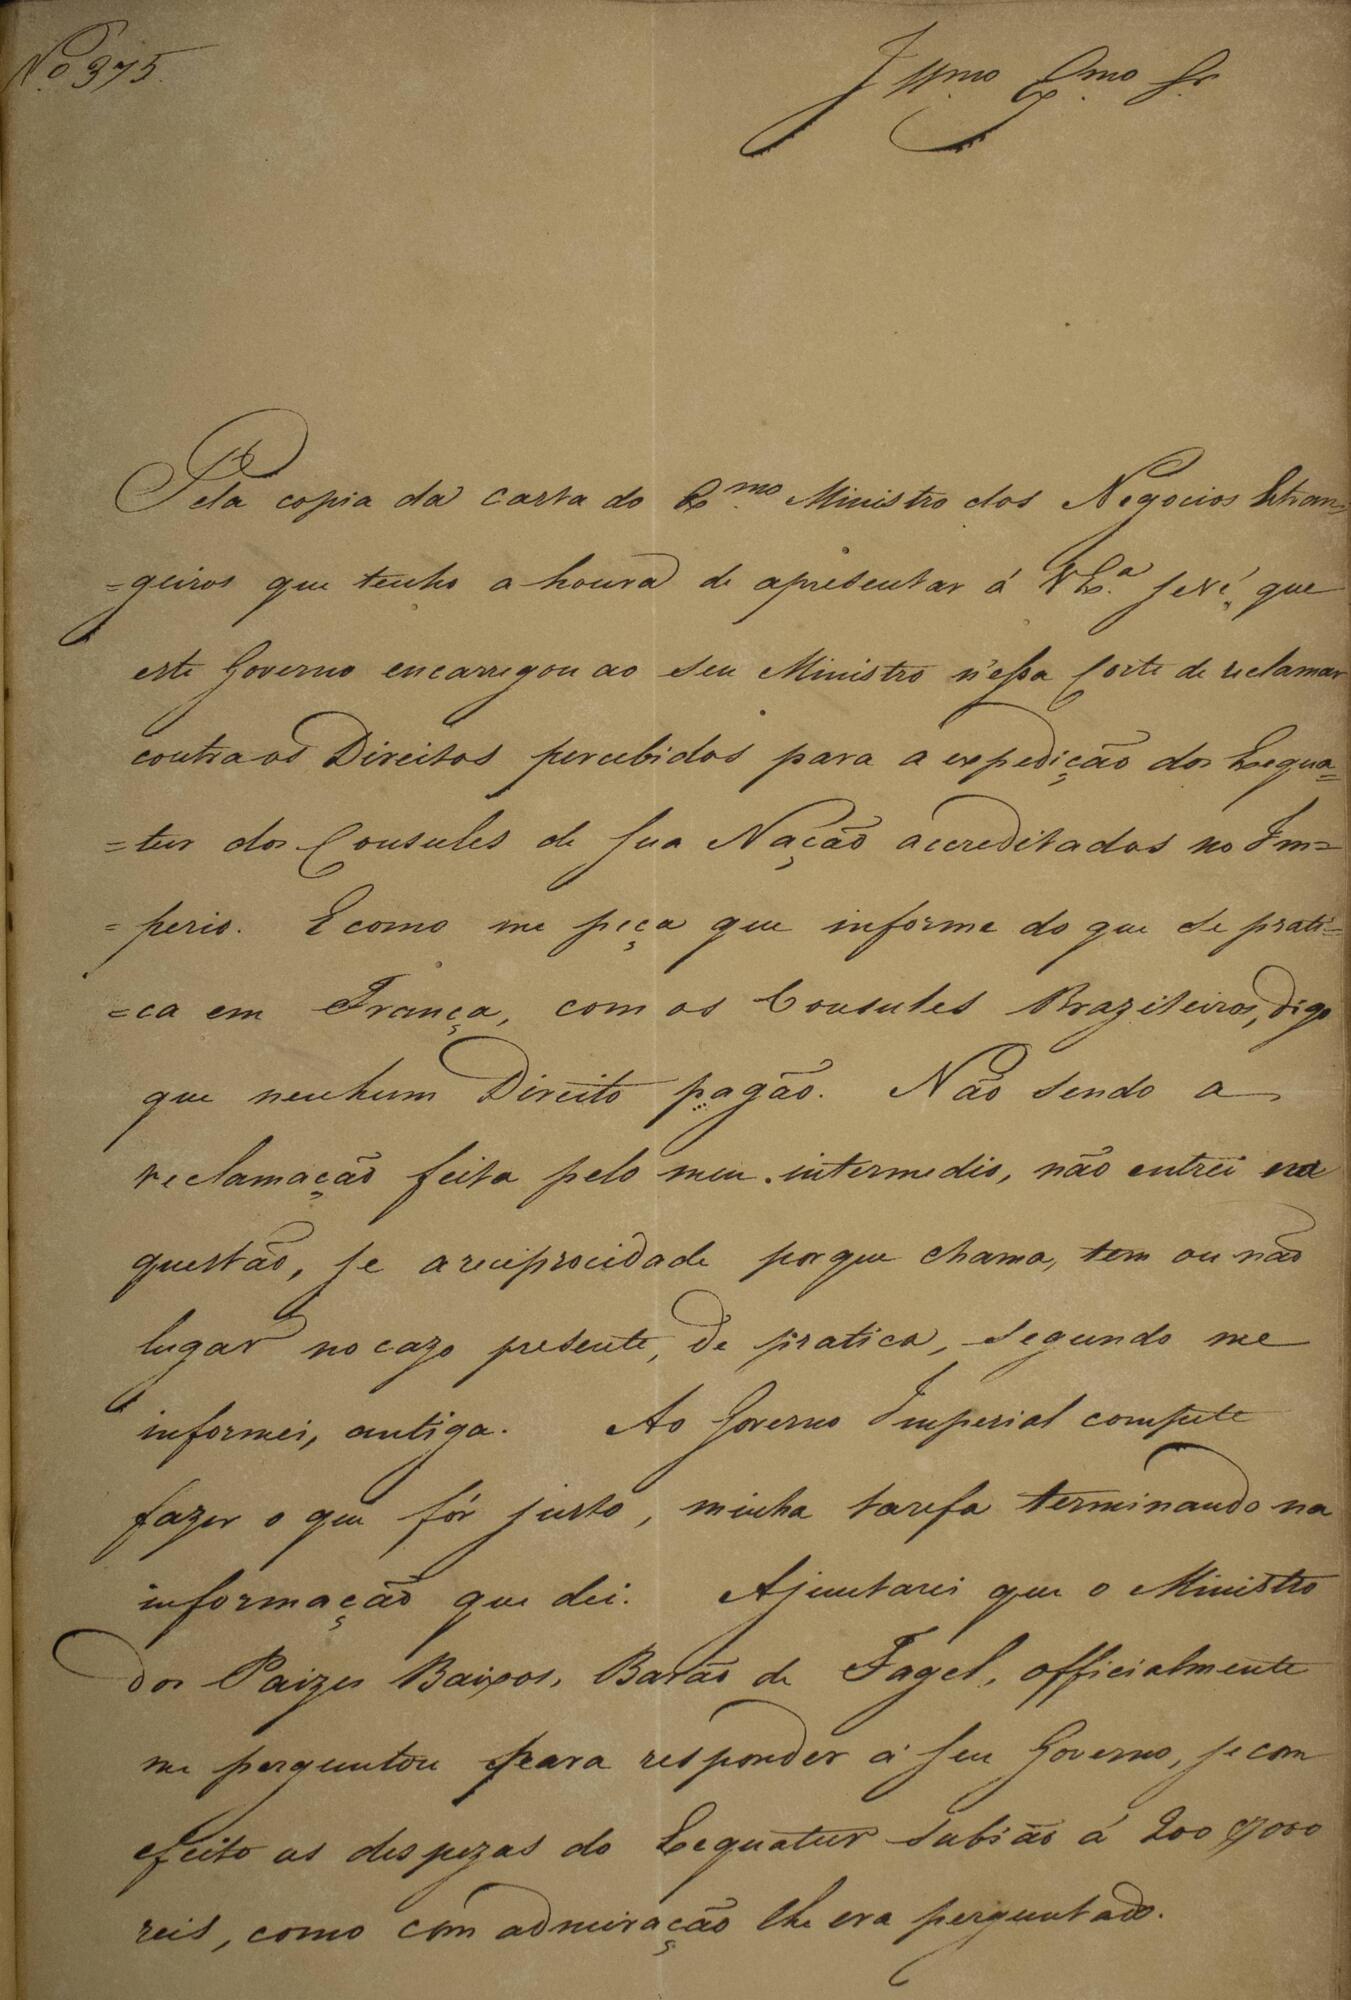 N.o 375.
Illmo Exmo Sr
Pela copia da carta do Exmo Ministro dos Negocios Estran=
=geiros que tenho a honra de apresentar á V Ex.a se vê, que
este Governo encarregou ao seu Ministro n'essa Corte de reclamar
contra os Direitos percebidos para a expedição dos Exequa=
=tur dos Consules de sua Nação accreditados no Im=
=perio. E como me peça que informe do que se prati=
=ca em França, com os Consules Brazileiros, digo
que nenhum Direito pagão. Não sendo a
reclamação feita pelo meu intermedio, não entrei na
questão, se a reciprocidade porque chama, tem ou não
lugar no cazo presente, de pratica, segundo me
informei, antiga. Ao Governo Imperial compete
fazer o que fôr justo, minha tarefa terminando na
informação que dei. Ajuntarei que o Ministro
dos Paizes Baixos, Barão de Fagel, officialmente
me perguntou para responder á seu Governo, se com
effeito as despezas do Exequatur subião á 200$000
reis, como com admiração lhe era perguntado.